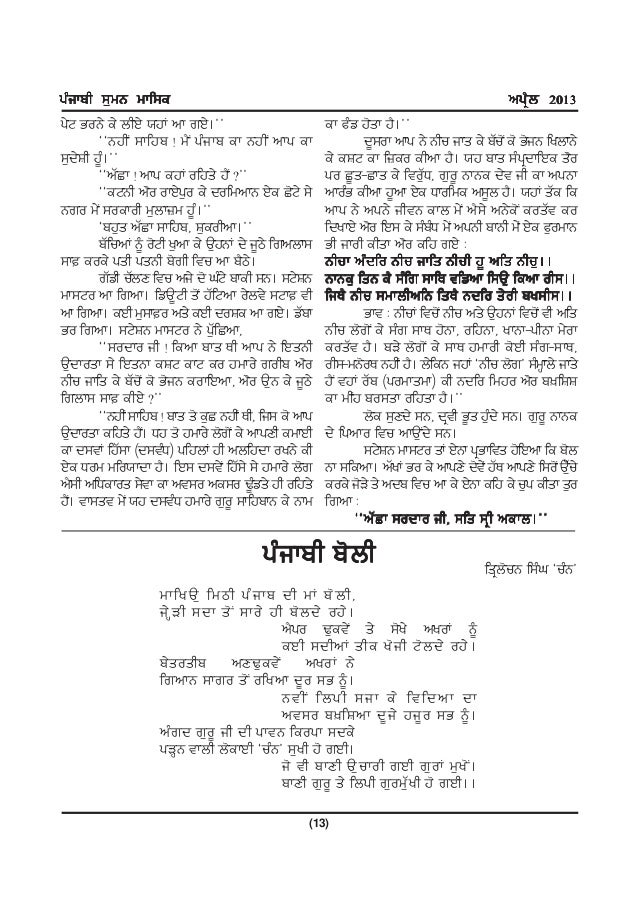 ਪੰਜਾਬੀ ਸੁਮਨ ਮਾਸਿਕ
ਅਪ੍ਰੈਲ 2013
ਪੇਟ ਭਰਨੇ ਕੇ ਲੀਏ ਯਹਾਂ ਆ ਗਏ।''
''ਨਹੀਂ ਸਾਹਿਬ! ਮੈਂ ਪੰਜਾਬ ਕਾ ਨਹੀਂ ਆਪ ਕਾ
ਸੁਦੇਸ਼ੀ ਹੂੰ।''
''ਅੱਛਾ! ਆਪ ਕਹਾਂ ਰਹਿਤੇ ਹੈਂ?''
''ਕਟਨੀ ਔਰ ਰਾਏਪੁਰ ਕੇ ਦਰਮਿਆਨ ਏਕ ਛੋਟੇ ਸੇ
ਨਗਰ ਮੇਂ ਸਰਕਾਰੀ ਮੁਲਾਜ਼ਮ ਹੂੰ।''
'ਬਹੁਤ ਅੱਛਾ ਸਾਹਿਬ, ਸ਼ੁਕਰੀਆ।''
ਬੱਚਿਆਂ ਨੂੰ ਰੋਟੀ ਖੁਆ ਕੇ ਉਹਨਾਂ ਦੇ ਜੂਠੇ ਗਿਅਲਾਸ
ਸਾਫ਼ ਕਰਕੇ ਪਤੀ ਪਤਨੀ ਬੋਗੀ ਵਿਚ ਆ ਬੈਠੇ।
ਗੱਡੀ ਚੱਲਣ ਵਿਚ ਅਜੇ ਦੋ ਘੰਟੇ ਬਾਕੀ ਸਨ। ਸਟੇਸ਼ਨ
ਮਾਸਟਰ ਆ ਗਿਆ। ਡਿਊਟੀ ਤੋਂ ਹੱਟਿਆ ਰੇਲਵੇ ਸਟਾਫ਼ ਵੀ
ਆ ਗਿਆ। ਕਈ ਮੁਸਾਫ਼ਰ ਅਤੇ ਕਈ ਦਰਸ਼ਕ ਆ ਗਏ। ਡੱਬਾ
ਭਰ ਗਿਆ। ਸਟੇਸ਼ਨ ਮਾਸਟਰ ਨੇ ਪੁੱਛਿਆ,
''ਸਰਦਾਰ ਜੀ! ਕਿਆ ਬਾਤ ਥੀ ਆਪ ਨੇ ਇਤਨੀ
ਉਦਾਰਤਾ ਸੇ ਇਤਨਾ ਕਸ਼ਟ ਕਾਟ ਕਰ ਹਮਾਰੇ ਗਰੀਬ ਔਰ
ਨੀਚ ਜਾਤਿ ਕੇ ਬੱਚੋਂ ਕੋ ਭੋਜਨ ਕਰਾਇਆ, ਔਰ ਉਨ ਕੇ ਜੂਠੇ
ਗਿਲਾਸ ਸਾਫ਼ ਕੀਏ?''
''ਨਹੀਂ ਸਾਹਿਬ! ਬਾਤ ਤੇ ਕੁਛ ਨਹੀਂ ਥੀ, ਜਿਸ ਕੋ ਆਪ
ਉਦਾਰਤਾ ਕਹਿਤੇ ਹੈਂ। ਯਹ ਤੋ ਹਮਾਰੇ ਲੋਗੋਂ ਕੇ ਆਪਣੀ ਕਮਾਈ
ਕਾ ਦਸਵਾਂ ਹਿੱਸਾ (ਦਸਵੰਧ) ਪਹਿਲਾਂ ਹੀ ਅਲਹਿਦਾ ਰਖਨੇ ਕੀ
ਏਕ ਧਰਮ ਮਰਿਯਾਦਾ ਹੈ। ਇਸ ਦਸਵੇਂ ਹਿੱਸੇ ਸੇ ਹਮਾਰੇ ਲੋਗ
ਐਸੀ ਅਧਿਕਾਰਤ ਸੇਵਾ ਕਾ ਅਵਸਰ ਅਕਸਰ ਢੂੰਡਤੇ ਹੀ ਰਹਿਤੇ
ਹੈਂ। ਵਾਸਤਵ ਮੇਂ ਯਹ ਦਸਵੰਧ ਹਮਾਰੇ ਗੁਰੂ ਸਾਹਿਬਾਨ ਕੇ ਨਾਮ
ਕਾ ਫੰਡ ਹੋਤਾ ਹੈ।''
ਦੂਸਰਾ ਆਪ ਨੇ ਨੀਚ ਜਾਤ ਕੇ ਬੱਚੋਂ ਕੋ ਭੋਜਨ ਖਿਲਾਨੇ
ਕੇ ਕਸ਼ਟ ਕਾ ਜ਼ਿਕਰ ਕੀਆ ਹੈ। ਯਹ ਬਾਤ ਸੰਪ੍ਰਦਾਇਕ ਤੌਰ
ਪਰ ਛੂਤ-ਛਾਤ ਕੇ ਵਿਰੁੱਧ, ਗੁਰੂ ਨਾਨਕ ਦੇਵ ਜੀ ਕਾ ਅਪਨਾ
ਆਰੰਭ ਕੀਆ ਹੂਆ ਏਕ ਧਾਰਮਿਕ ਅਸੂਲ ਹੈ। ਯਹਾਂ ਤੱਕ ਕਿ
ਆਪ ਨੇ ਅਪਨੇ ਜੀਵਨ ਕਾਲ ਮੇਂ ਐਸੇ ਅਨੇਕੋਂ ਕਰਤੱਵ ਕਰ
ਦਿਖਾਏ ਔਰ ਇਸ ਕੇ ਸੰਬੰਧ ਮੇਂ ਅਪਨੀ ਬਾਨੀ ਮੇਂ ਏਕ ਫੁਰਮਾਨ
ਭੀ ਜਾਰੀ ਕੀਤਾ ਔਰ ਕਹਿ ਗਏ :
ਨੀਚਾ ਅੰਦਰਿ ਨੀਚ ਜਾਤਿ ਨੀਚੀ ਹੂ ਅਤਿ ਨੀਚੁ।।
ਨਾਨਕੁ ਤਿਨ ਕੈ ਸੰਗਿ ਸਾਥਿ ਵਡਿਆ ਸਿਉ ਕਿਆ ਰੀਸ।।
ਜਿਥੈ ਨੀਚ ਸਮਾਲੀਅਨਿ ਤਿਥੈ ਨਦਰਿ ਤੇਰੀ ਬਖਸੀਸ।।
ਭਾਵ : ਨੀਚਾਂ ਵਿਚੋਂ ਨੀਚ ਅਤੇ ਉਹਨਾਂ ਵਿਚੋਂ ਵੀ ਅਤਿ
ਨੀਚ ਲੋਗੋਂ ਕੇ ਸੰਗ ਸਾਥ ਹੋਨਾ, ਰਹਿਨਾ, ਖਾਨਾ-ਪੀਨਾ ਮੇਰਾ
ਕਰਤੱਵ ਹੈ। ਬੜੇ ਲੋਗੋਂ ਕੇ ਸਾਥ ਹਮਾਰੀ ਕੋਈ ਸੰਗ-ਸਾਥ,
ਰੀਸ-ਮਨੋਰਥ ਨਹੀਂ ਹੈ। ਲੇਕਿਨ ਜਹਾਂ 'ਨੀਚ ਲੋਗ' ਸੰਮ੍ਹਾਲੇ ਜਾਤੇ
ਹੈਂ ਵਹਾਂ ਰੱਬ (ਪਰਮਾਤਮਾ) ਕੀ ਨਦਰਿ ਮਿਹਰ ਔਰ ਬਖ਼ਸ਼ਿਸ਼
ਕਾ ਮੀਂਹ ਬਰਸਤਾ ਰਹਿਤਾ ਹੈ।''
ਲੋਕ ਸੁਣਦੇ ਸਨ, ਦ੍ਰਵੀ ਭੂਤ ਹੁੰਦੇ ਸਨ। ਗੁਰੂ ਨਾਨਕ
ਦੇ ਪਿਆਰ ਵਿਚ ਆਉਂਦੇ ਸਨ।
ਸਟੇਸ਼ਨ ਮਾਸਟਰ ਤਾਂ ਏਨਾ ਪ੍ਰਭਾਵਿਤ ਹੋਇਆ ਕਿ ਬੋਲ
ਨਾ ਸਕਿਆ। ਅੱਖਾਂ ਭਰ ਕੇ ਆਪਣੇ ਦੋਵੇਂ ਹੱਥ ਆਪਣੇ ਸਿਰੋਂ ਉੱਚੇ
ਕਰਕੇ ਜੋੜੇ ਤੇ ਅਦਬ ਵਿਚ ਆ ਕੇ ਏਨਾ ਕਹਿ ਕੇ ਚੁਪ ਕੀਤਾ ਤੁਰ
ਗਿਆ :
''ਅੱਛਾ ਸਰਦਾਰ ਜੀ, ਸਤਿ ਸ੍ਰੀ ਅਕਾਲ।''
ਪੰਜਾਬੀ ਬੋਲੀ
ਤ੍ਰਿਲੋਚਨ ਸਿੰਘ 'ਚੰਨ'
ਮਾਖਿਉ ਮਿਠੀ ਪੰਜਾਬ ਦੀ ਮਾਂ ਬੋਲੀ,
ਜੇੜੀ ਸਦਾ ਤੋਂ ਸਾਰੇ ਹੀ ਬੋਲਦੇ ਰਹੇ।
ਐਪਰ ਢੁਕਵੇਂ ਤੇ ਸੋਖੇ ਅਖਰਾਂ ਨੂੰ
ਕਈ ਸਦੀਆਂ ਤੀਕ ਖੋਜੀ ਟੋਲਦੇ ਰਹੇ।
ਬੇਤਰਤੀਬ ਅਣਢੁਕਵੇਂ ਅਖਰਾਂ ਨੇ
ਗਿਆਨ ਸਾਗਰ ਤੋਂ ਰਖਿਆ ਦੂਰ ਸਭ ਨੂੰ।
ਨਵੀਂ ਲਿਪੀ ਸਜਾ ਕੇ ਵਿਦਿਆ ਦਾ
ਅਵਸਰ ਬਖ਼ਸ਼ਿਆ ਦੂਜੇ ਹਜੂਰ ਸਭ ਨੂੰ।
ਅੰਗਦ ਗੁਰੂ ਜੀ ਦੀ ਪਾਵਨ ਕਿਰਪਾ ਸਦਕੇ
ਪੜ੍ਹਨ ਵਾਲੀ ਲੋਕਾਈ 'ਚੰਨ' ਸੁਖੀ ਹੋ ਗਈ।
ਜੋ ਵੀ ਬਾਣੀ ਉਚਾਰੀ ਗਈ ਗੁਰਾਂ ਮੁਖੋਂ।
ਬਾਣੀ ਗੁਰੂ ਤੇ ਲਿਪੀ ਗੁਰਮੁੱਖੀ ਹੋ ਗਈ।।
(13)